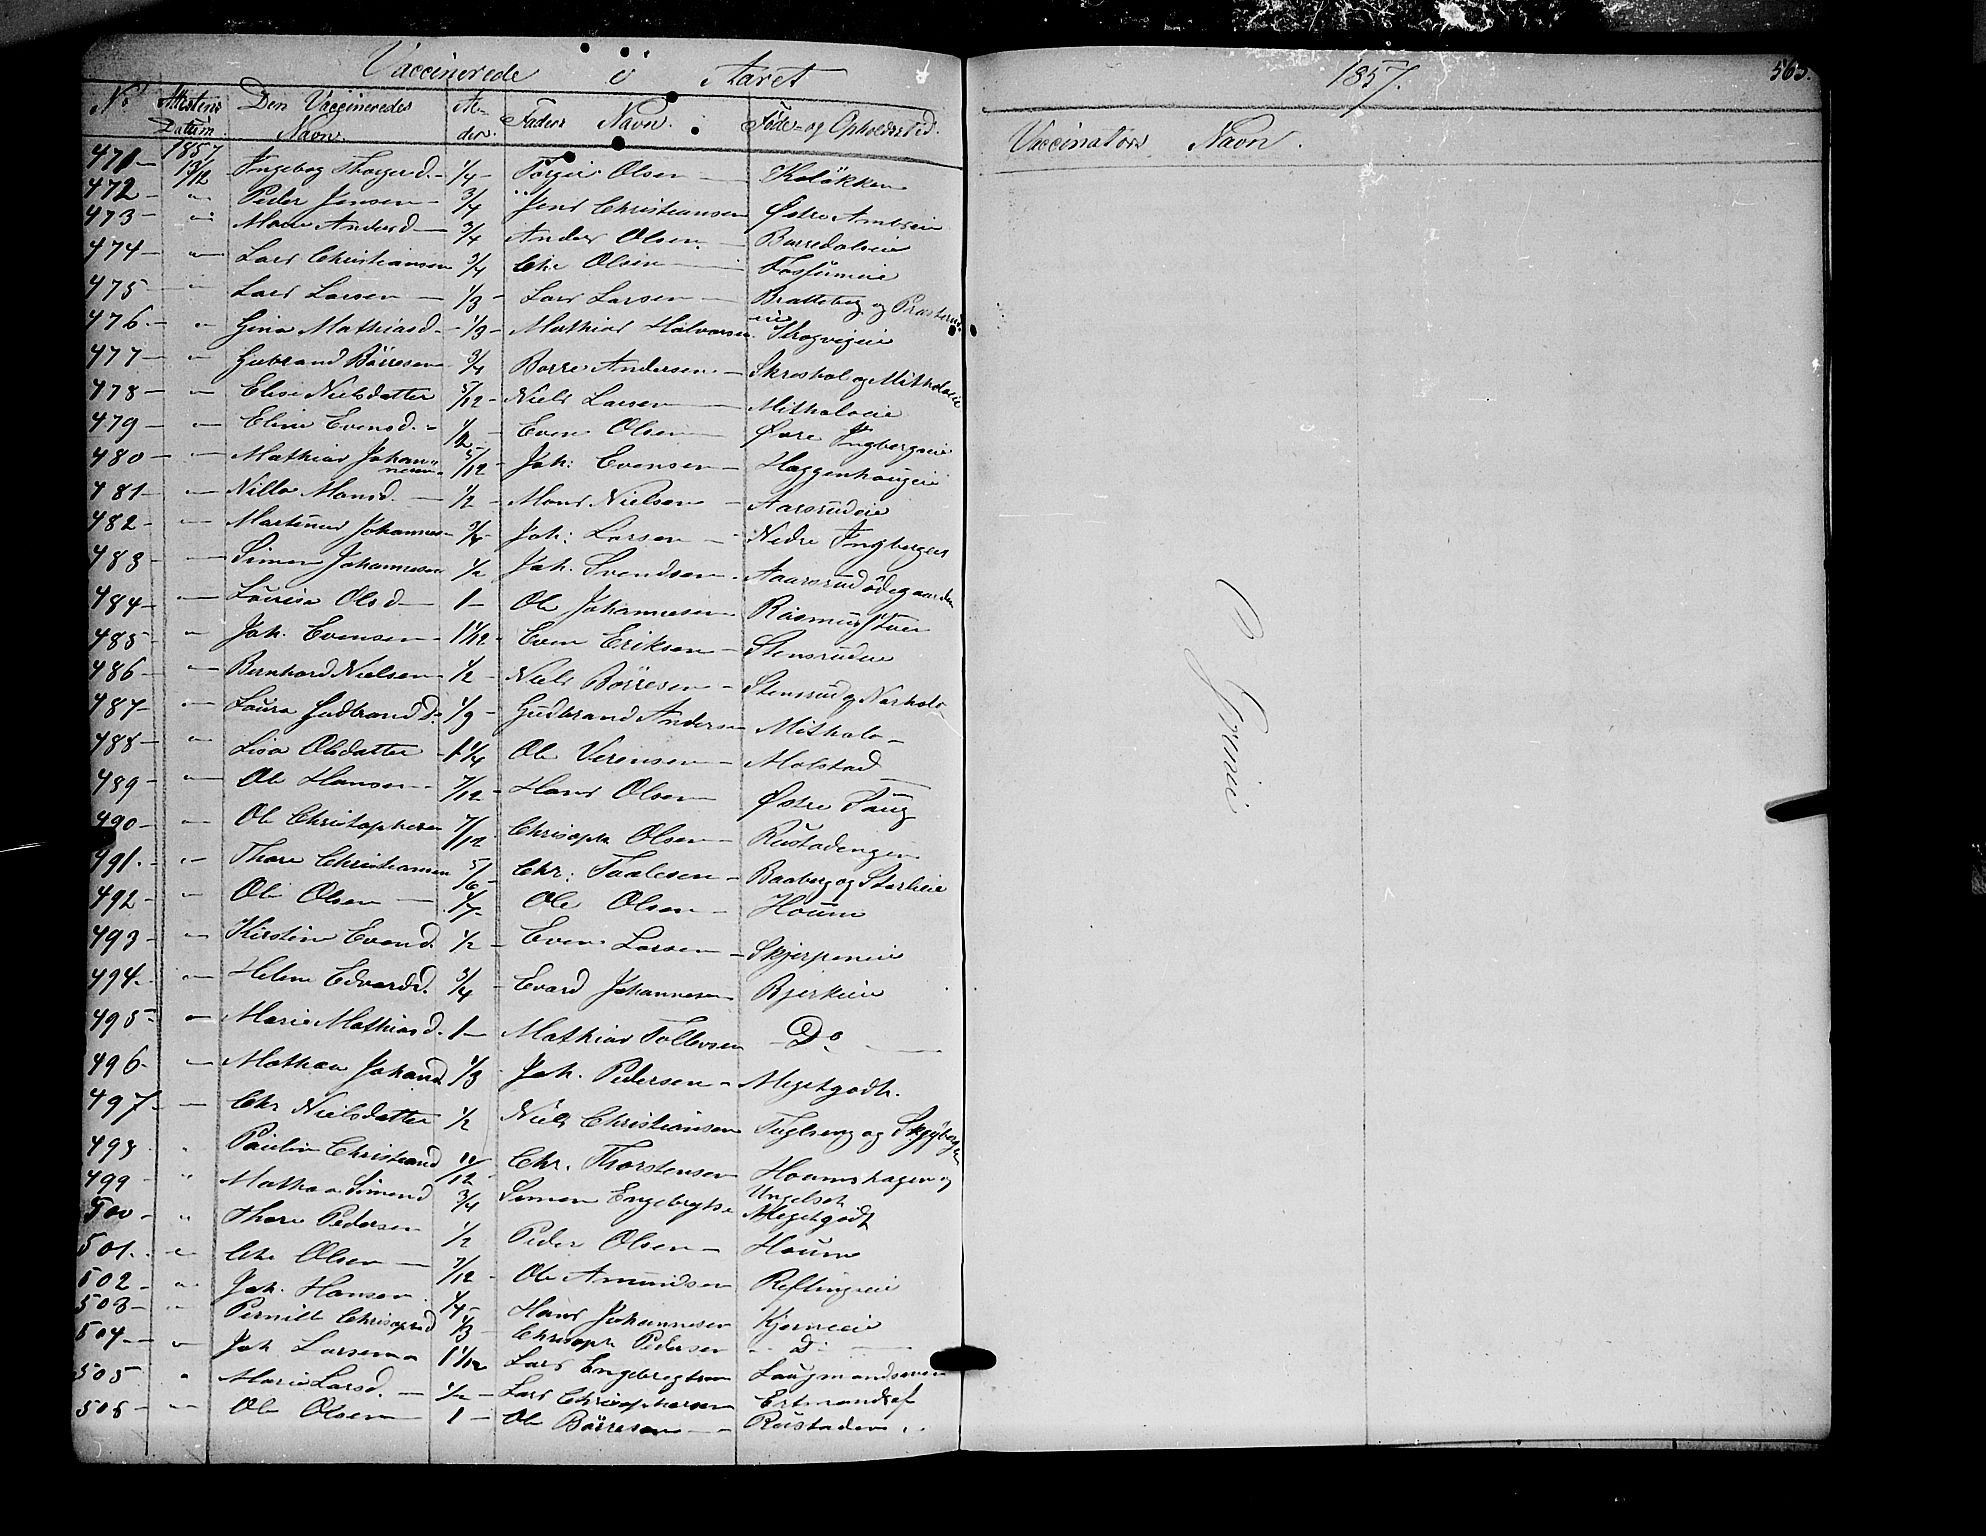 Vaccinerede i Aaret
1857.
565.
No Attestens Datum. Den Vaccineredes Navn. Al- der. Faders Navn. Føde- og Opholdssted.
Vaccinatørs Navn.
1857
471 - 13/12 Ingebog Thorgersd. - 1/4 - Torger Olsen - Koløkken
472 - " - Peder Jensen - 3/4 Jens Christiansen Østre
473 - " - Maren Andersd - 3/4 Anders Olsen - Borredalseie
474 - " - Lars Christiansen 3/4 Chr Olsen - Fossumeie
475 - " - Lars Larsen - 1/3 - Lars Larsen - Bratteberg og
476 - " - Gina Mathiasd. - 1/3 - Mathias Halvorsen
477 - " - Gubrand Börresen 3/4 Borre Andersen - Skreshol og Mitholseie
478 - " - Elise Nielsdatter 5/12 - Niels Larsen - Mitholseie
479 - " - Eline Evensd. - 1/2 - Even Olsen - Øvre Yngbergseie
480 - " - Mathias Johan-
nesen 5/12 Joh: Evensen - Haggenhaugeie
481 - " - Nilla Monsd. - 1/2 - Mons Nielsen - Aarsrudeie
482 - " - Martinus Johannes - 3/4 - Joh: Larsen - Nedre Yngbergseie
483 - " - Simen Johannesen 1/2 Joh. Svendsen - Aarsrudødegaarden
484 - " - Lovisa Olsd - 1 - Ole Johannesen -
485 - " - Joh. Evensen - 1 1/12 - Even Eriksen - Stensrudeie
486 - " - Bernhard Nielsen - 1/2 - Niels Börresen - Stensrud og Narhols
487 - " - Laura Gudbrandsd - 1/3 - Gudbrand Andersen Mithols -
488 - " - Lisa Olsdatter - 1 1/4 Ole Verensen - Molstad
489 - " - Ole Hansen - 7/12 - Hans Olsen Østre Saug
490 - " - Ole Christophersen 7/12 Chrisoph Olsen - Rustadengen
491. - " - Thore Christiansen 5/6 - Chr: Taalesen - Baaberg og
492 - " - Ole Olsen - 1/7 - Ole Olsen - Houm
493 - " - Kirstine Evensd. 1/2 - Even Larsen - Skjerpeneie
494. - " - Helene Edvardsd. 3/4 - Evard Johannesen Bjerkeeie
495 - " - Marie Mathiasd. 1 - Mathias Tollevsen - Do -
496. - " - Mathea Johansd 1/3 Joh. Pedersen - Megetgodt.
497 - " - Chr Nielsdatter 1/2 Niels Christiansen Fuglseng og
498 " Pauline Christiansd 11/12 Chr. Thorstensen Houmshagen og
Ungelset
499 " Mathea Simensd 3/4 Simen Engebrgts Megetgodt
500 - " Thore Pedersen 1/2 Peder Olsen - Houm
501. - " - Chr Olsen - 7/12 - Ole Amundsen Reflingseie
502 - " - Joh. Hansen 1/4 - Hans Johannesen Kjerneeie
503 - " Pernille Chrisophd 1/3 - Chrisoph Pedersen - D -
504 - " Joh Larsen 1 1/12 Lars Engebregtsen Laugmandseie
505 " Marie Larsd. - 1/2 - Lars Chrisophersen
506 - " - Ole Olsen - 1 - Ole Börresen - Rustaden